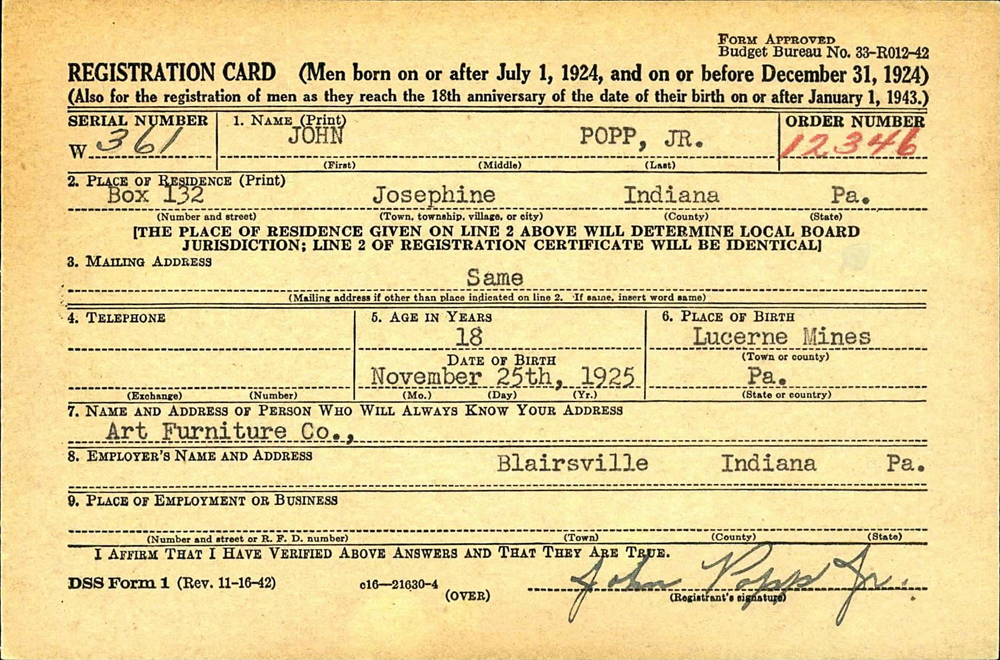 FORM APPROVED
Budget Bureau No. 33-R012-42
REGISTRATION CARD (Men born on or after July 1, 1924, and on or before December 31, 1924)
(Also for the registration of men as they reach the 18th anniversary of the date of their birth on or after January 1, 1943.)
SERIAL NUMBER 1. NAME (Print) ORDER NUMBER
W 361 JOHN POPP, JR. 12346
(First) (Middle) (Last)
2. PLACE OF RESIDENCE (Print)
Box 132 Josephine Indiana Pa.
(Number and street) (Town, township, village, or city) (County) (State)
[THE PLACE OF RESIDENCE GIVEN ON LINE 2 ABOVE WILL DETERMINE LOCAL BOARD
JURISDICTION; LINE 2 OF REGISTRATION CERTIFICATE WILL BE IDENTICAL]
3. MAILING ADDRESS
Same
(Mailing address if other than place indicated on line 2. If same, insert word same)
4. TELEPHONE 5. AGE IN YEARS 6. PLACE OF BIRTH
18 Lucerne Mines
DATE OF BIRTH (Town or county)
November 25th, 1925 Pa.
(Exchange) (Number) (Mo.) (Day) (Yr.) (State or country)
7. NAME AND ADDRESS OF PERSON WHO WILL ALWAYS KNOW YOUR ADDRESS
Art Furniture Co.,
8. EMPLOYER'S NAME AND ADDRESS Blairsville Indiana Pa.
9. PLACE OF EMPLOYMENT OR BUSINESS
(Number and street or R. F. D. number) (Town) (County) (State)
I AFFIRM THAT I HAVE VERIFIED ABOVE ANSWERS AND THAT THEY ARE TRUE.
DSS Form 1 (Rev. 11-16-42) c16—21630-4 (OVER) John Popp Jr.
(Registrant's signature)